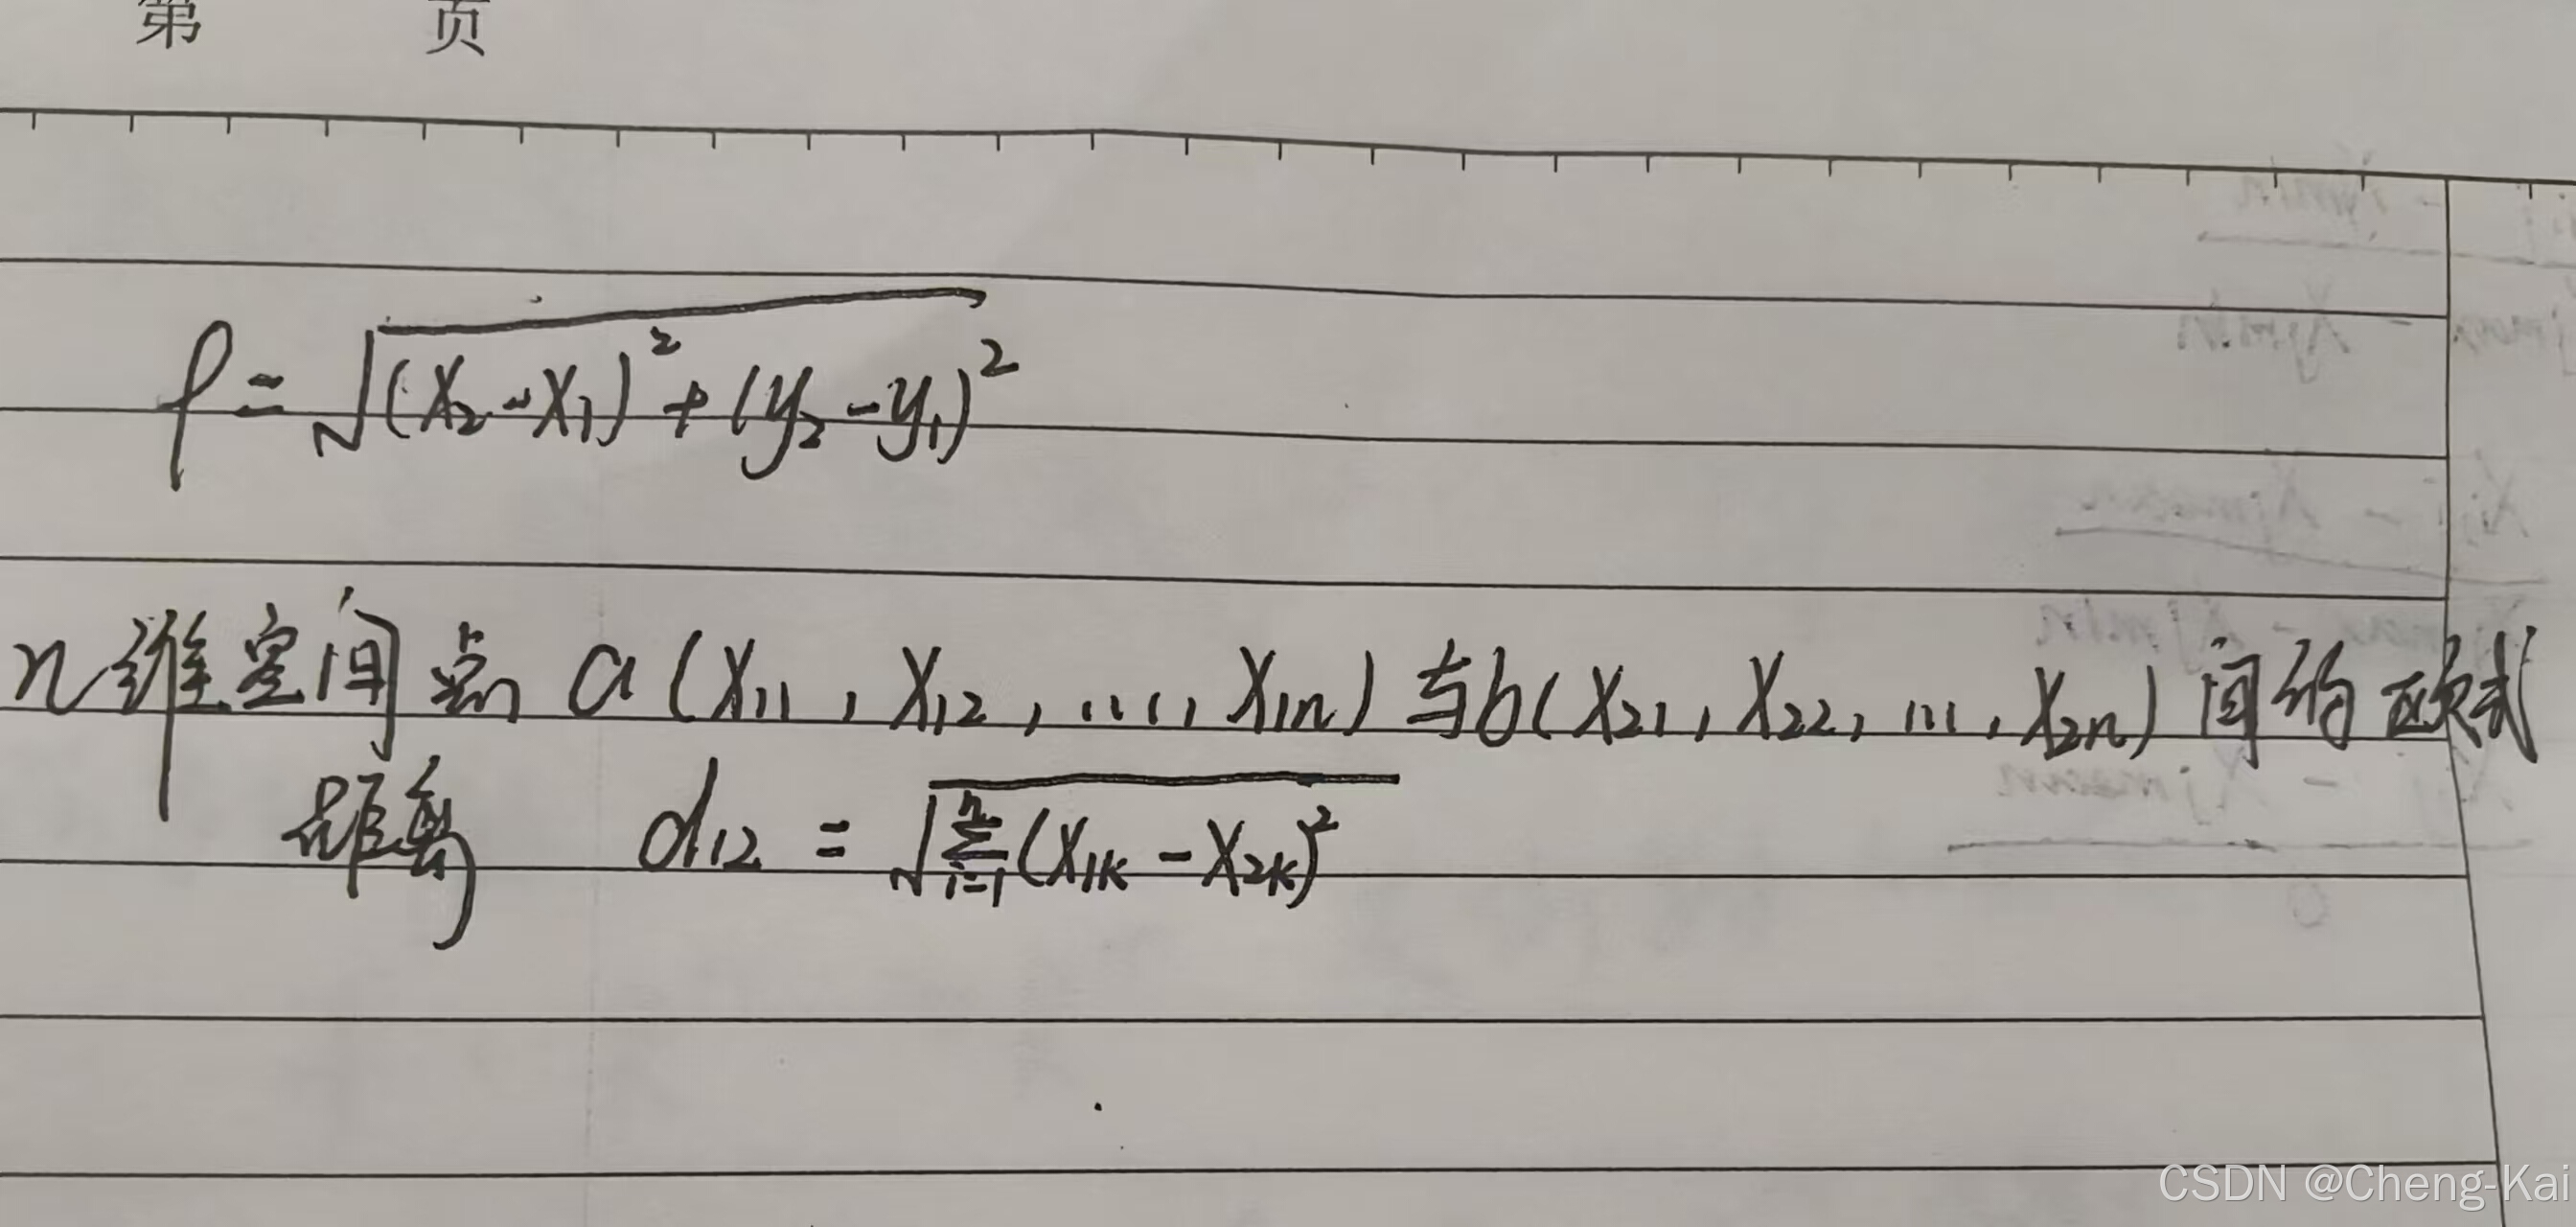 第 页
ρ = √(x₂-x₁)² + (y₂-y₁)²
n维空间点 a(x₁₁, x₁₂, ..., x₁ₙ) 与b(x₂₁, x₂₂, ..., x₂ₙ) 间的欧式
距离 d₁₂ = √∑ⁿᵢ₌₁(x₁ₖ - x₂ₖ)²
CSDN @Cheng-Kai